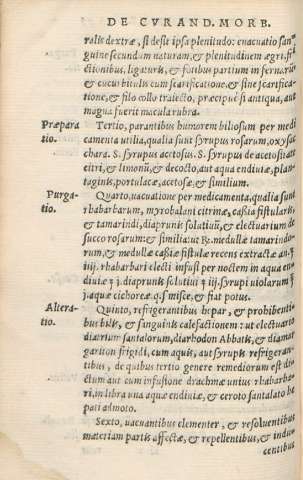 DE CVRAND. MORB.
ralis dextræ, si desit ipsa plenitudo: euacuatio san-
guine secundum naturam, & plenitudinem ægri, fri-
ctionibus, ligaturis, & fotibus partium infernarũ
& cucurbitulis cum scarificatione, & sine scarifica-
tione, & filo collo traiecto, præcipuè si antiqua, aut
magna fuerit macula rubra.
Præpara
tio.
Tertio, parantibus humorem biliosum per medi
camenta utilia, qualia sunt syrupus rosarum, oxysac
chara. S. syrupus acetosus. S. syrupus de acetositate
citri, & limonũ, & decocto, aut aqua endiuiæ, plan-
taginis, portulacæ, acetosæ, & similium.
Purga-
tio.
Quarto, uacuatione per medicamenta, qualia sunt
rhabarbarum, myrobalani citrinæ, caßia fistularis,
& tamarindi, diaprunis solutiuũ, & electuarium de
succo rosarum: & similia: ut ℞. medullæ tamarindo-
rum, & medullæ caßiæ fistulæ recens extractæ an. ʒ
iiij. rhabarbari electi infusi per noctem in aqua en-
diuiæ ʒ j. diaprunis solutiui ʒ iij. syrupi uiolarum ℥
j. aquæ cichoreæ q. s. misce, & fiat potus.
Altera-
tio.
Quinto, refrigerantibus hepar, & prohibentibus
bus bilis, & sanguinis calefactionem: ut electuario
diatrium santalorum, diarhodon Abbatis, & diamar
gariton frigidi, cum aquis, aut syrupis refrigeran-
tibus, de quibus tertio genere remediorum est di-
ctum aut cum infusione drachmæ unius rhabarba-
ri, in libra una aquæ endiuiæ, & ceroto santalato he
pati admoto.
Sexto, uacuantibus clementer, & resoluentibus
materiam partis affectæ, & repellentibus, & indu-
centibus